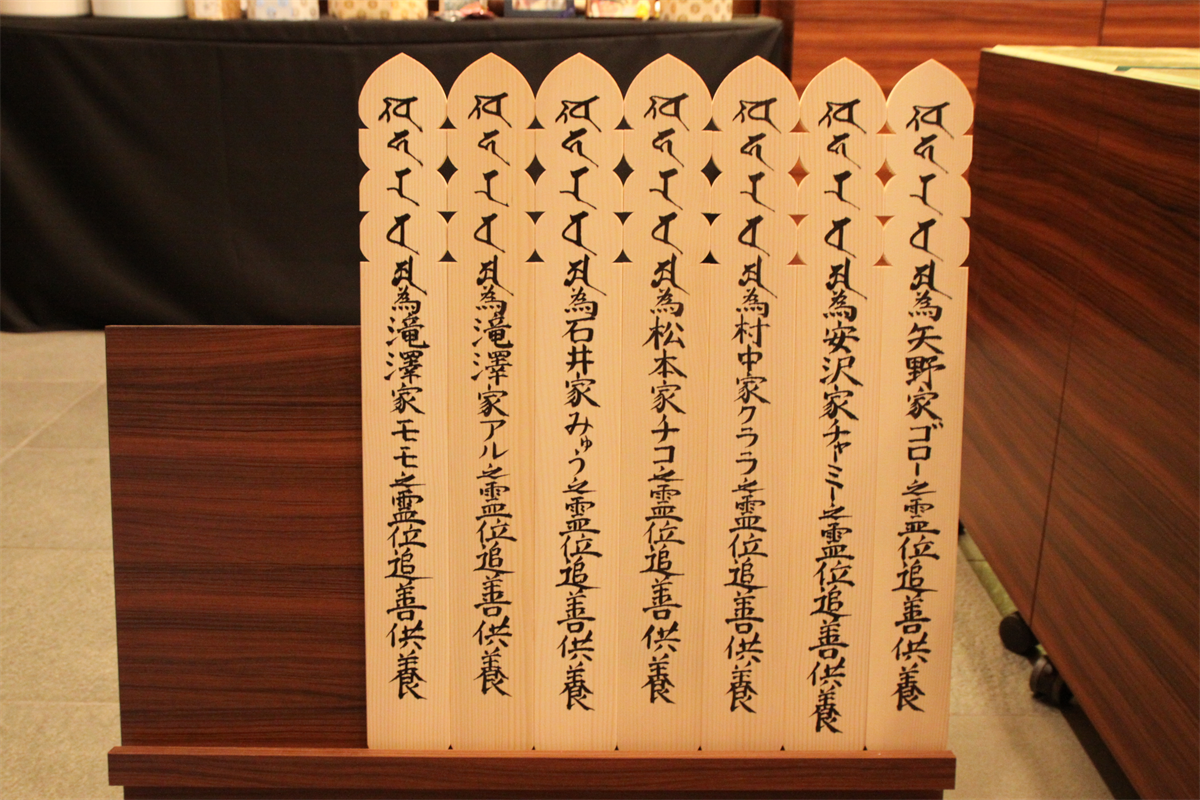 為矢野家ゴロー之霊位追善供養
為安沢家チャミー之霊位追善供養
為村中家クララ之霊位追善供養
為松本家チコ之霊位追善供養
為石井家みゅう之霊位追善供養
為滝澤家アル之霊位追善供養
為滝澤家モモ之霊位追善供養